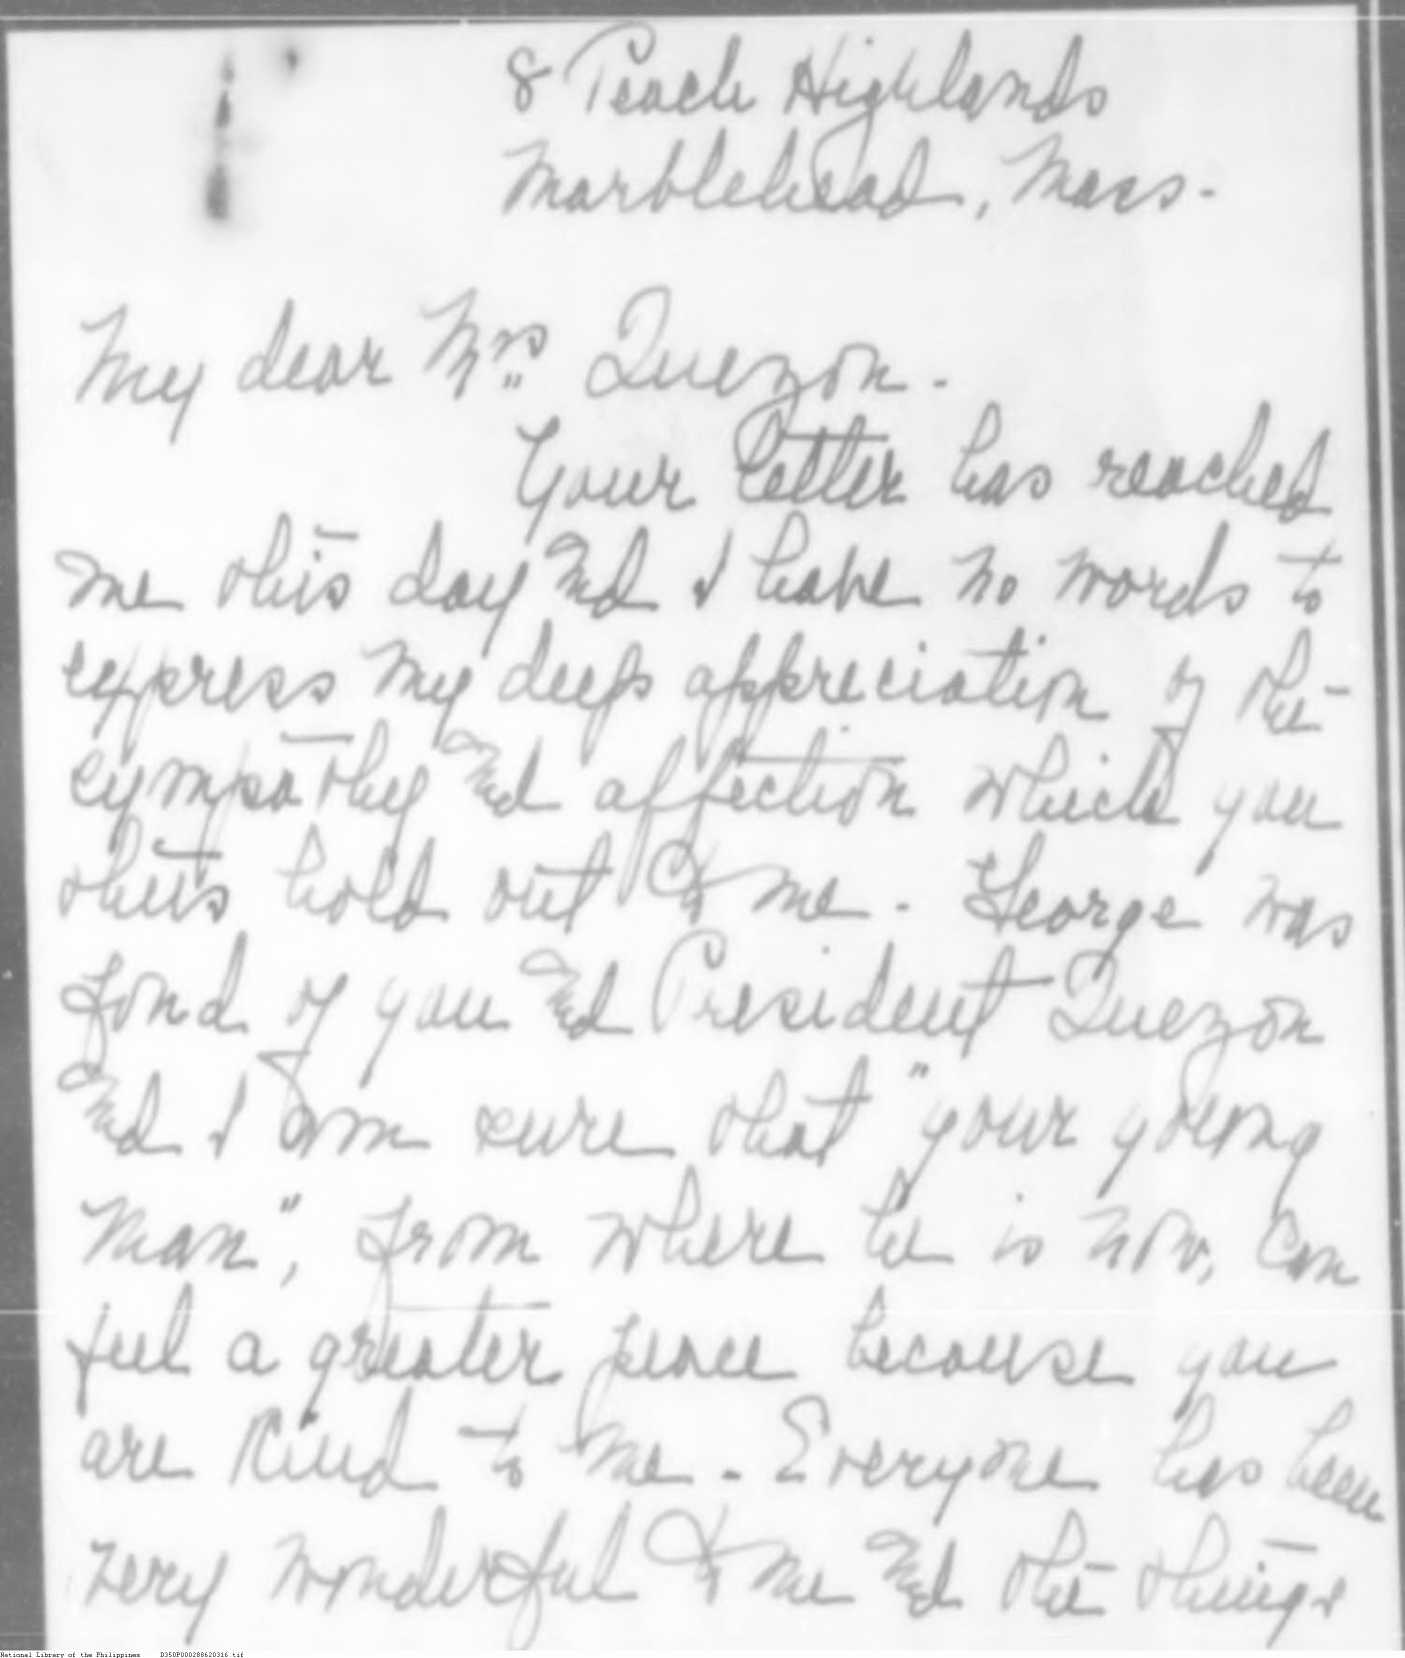 8 Peach Highlands
Marblehead, Mass.
My dear Mrs. Quezon.
Your letter has reached
me this day and I have no words to
express my deep appreciation of the
sympathy and affection which you
thus hold out to me. George was
fond of you and President Quezon
and I am sure that "your young
man", from where he is now, can
feel a greater peace because you
are kind to me. Everyone has been
very wonderful to me and the things
National Library of the Philippines D350P000288620316.tif